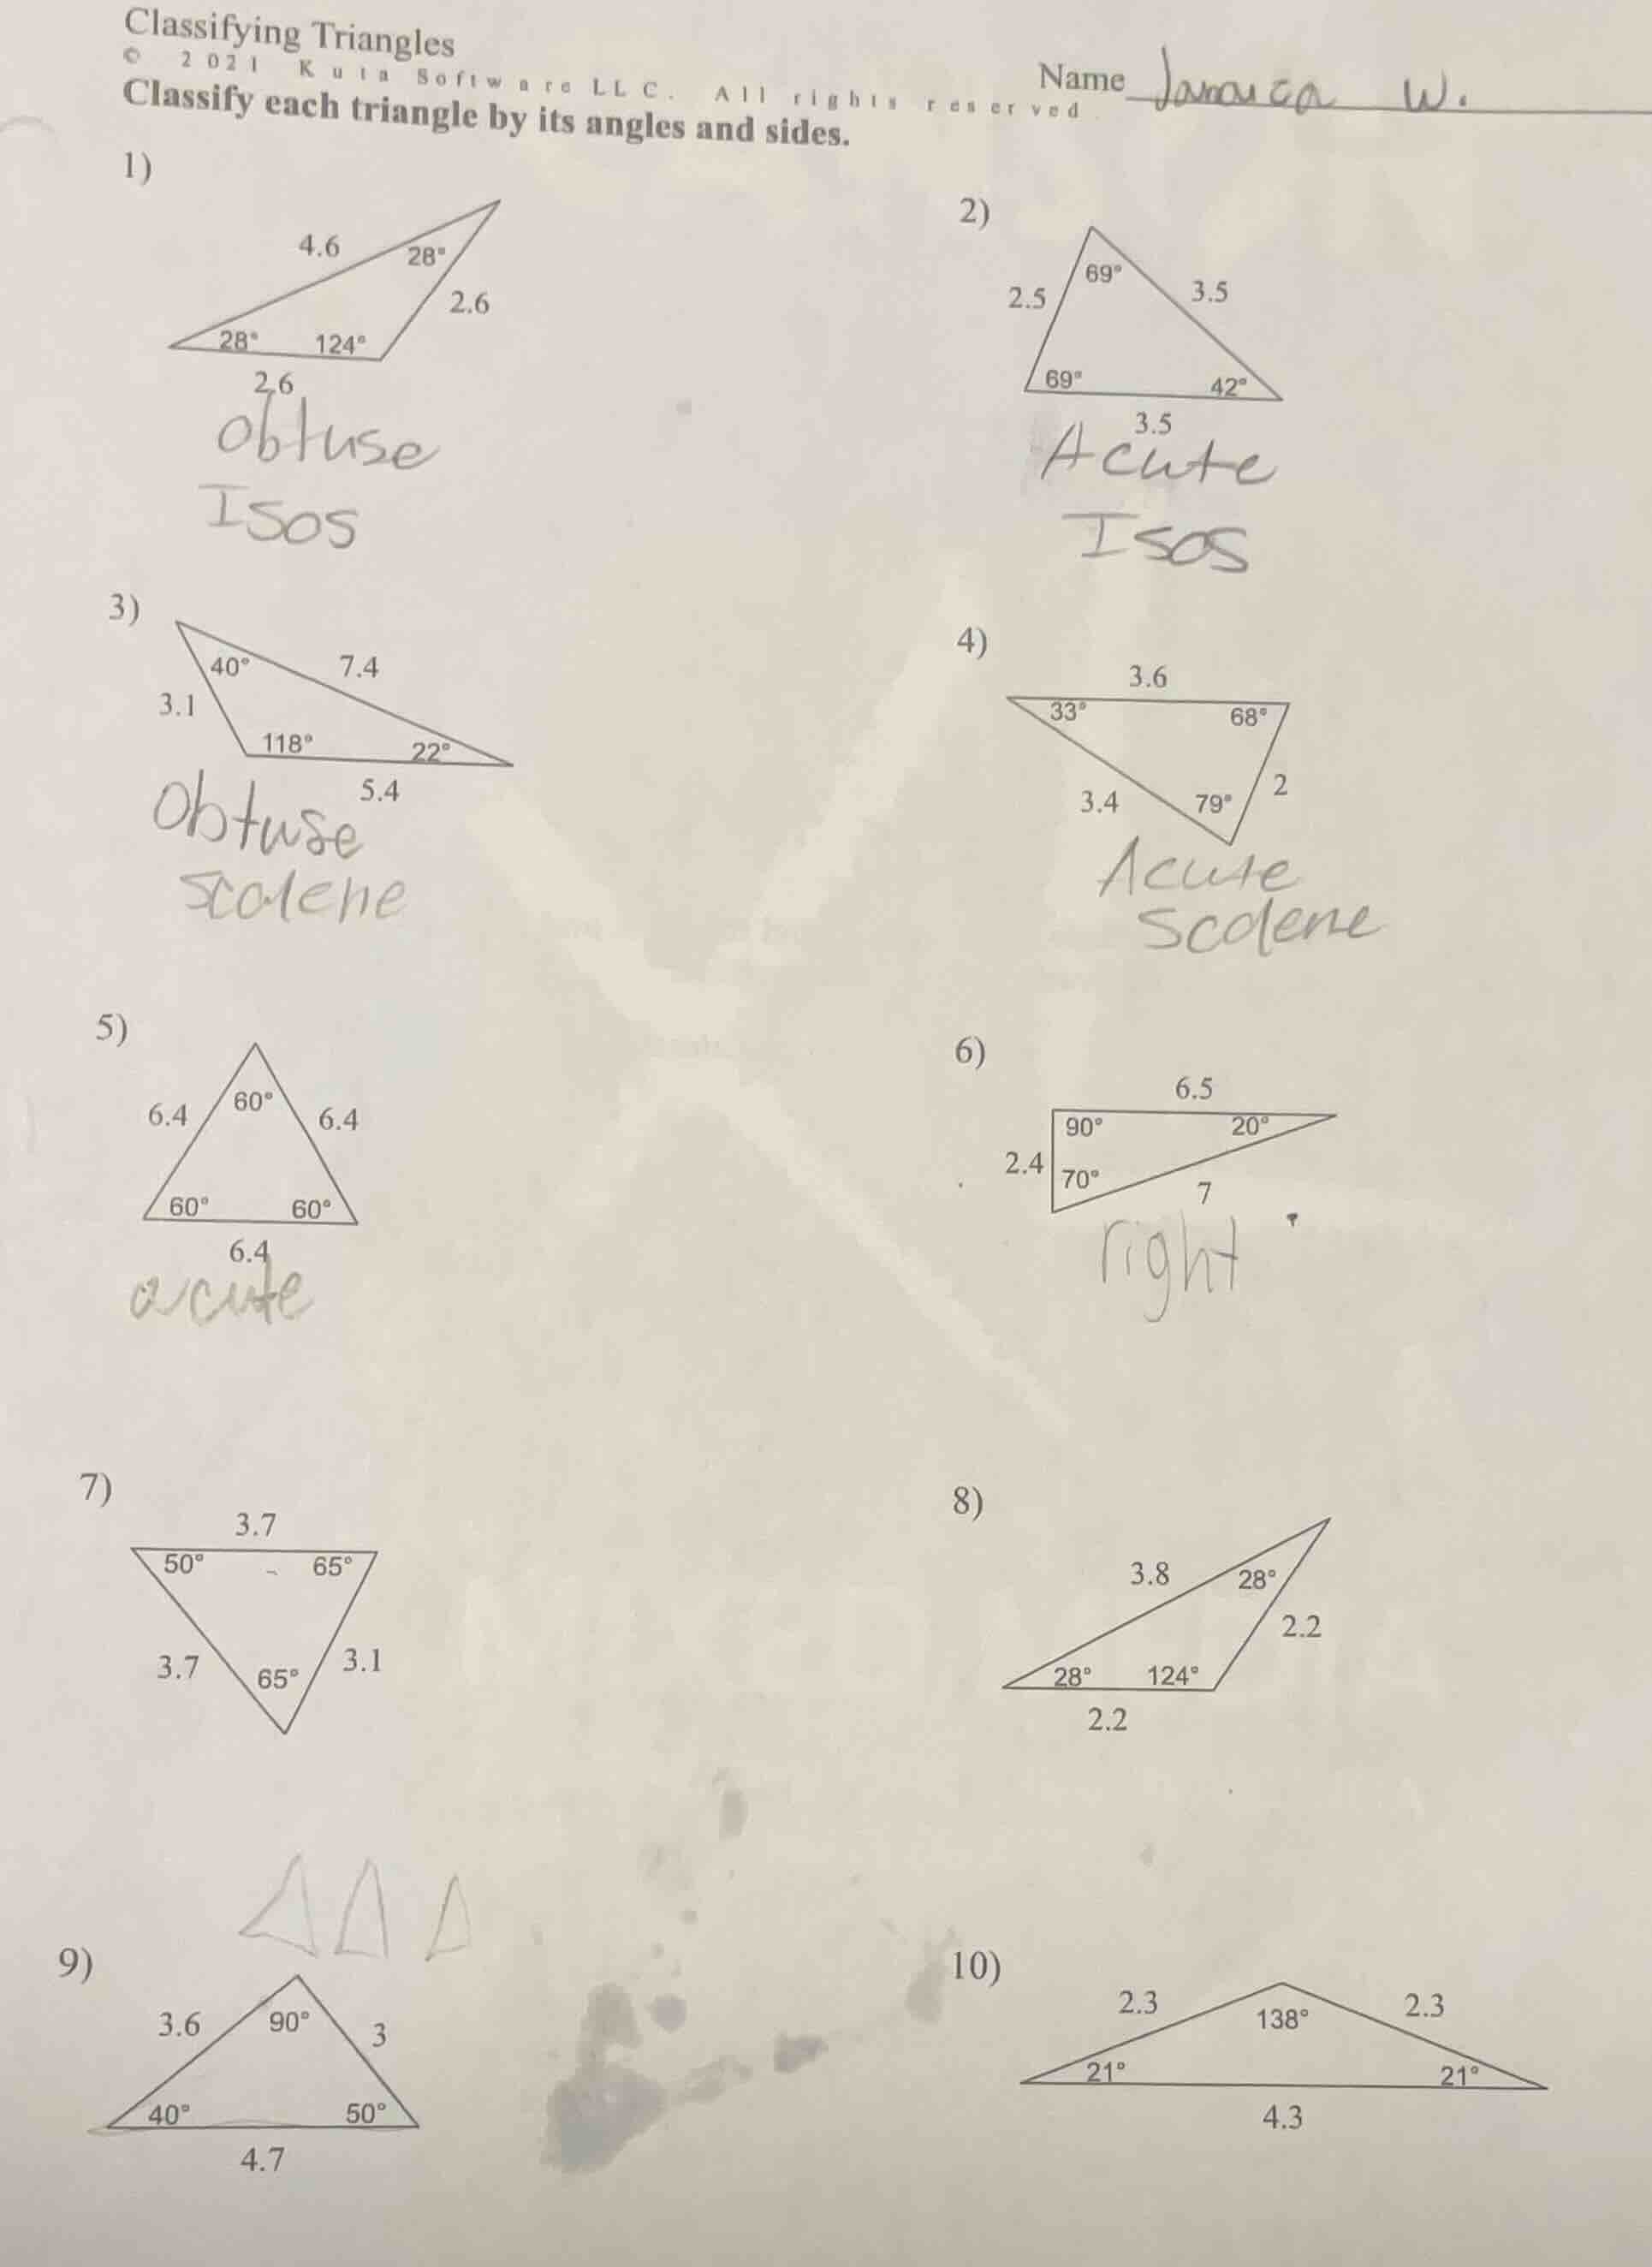 Classifying Triangles
© 2021 Kuta Software LLC. All rights reserved.
Name W.
Classify each triangle by its angles and sides.
1)
4.6
28°
2.6
28° 124°
2.6
obtuse
Isos
2)
69°
2.5
3.5
69° 42°
3.5
Acute
Isos
3)
40°
7.4
3.1
118° 22°
5.4
Obtuse
scalene
4)
3.6
33° 68°
2
3.4
79°
Acute
scalene
5)
60°
6.4 6.4
60° 60°
6.4
acute
6)
6.5
90° 20°
2.4
70°
7
right
7)
3.7
50° 65°
3.7
65°
3.1
8)
3.8
28°
2.2
28° 124°
2.2
9)
3.6
90°
3
40° 50°
4.7
10)
2.3 2.3
138°
21° 21°
4.3